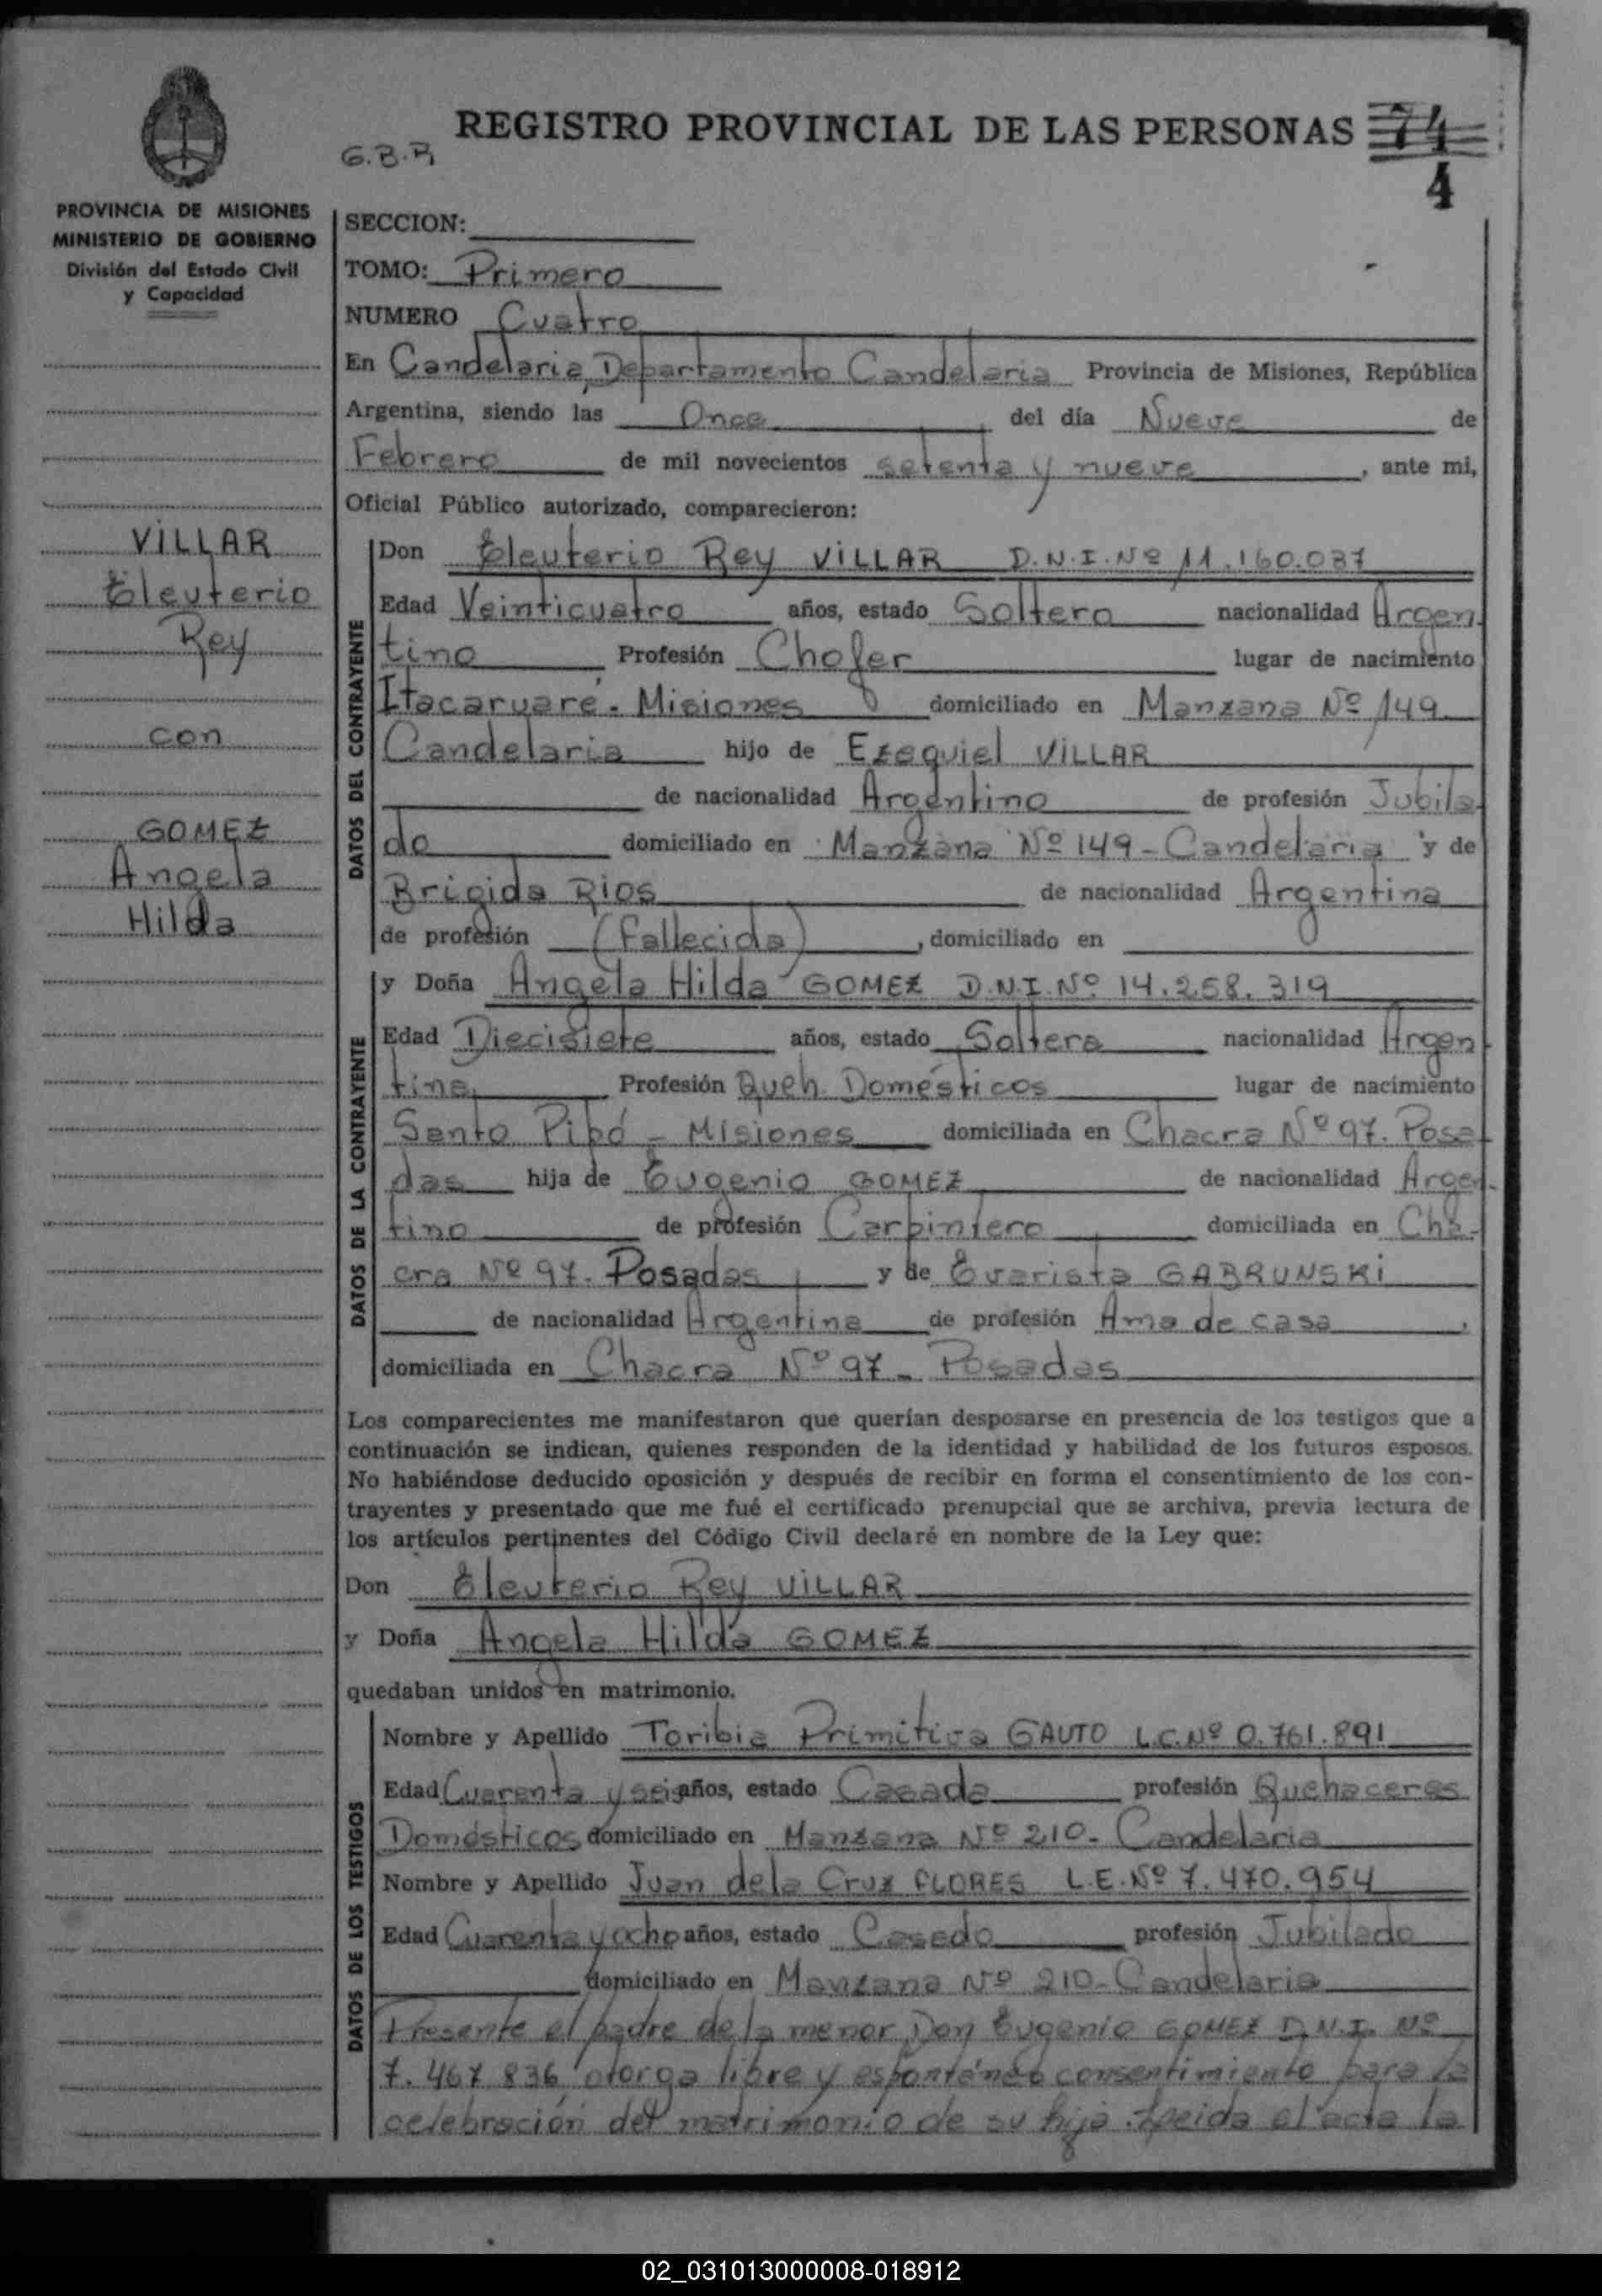 REGISTRO PROVINCIAL DE LAS PERSONAS 74
G.B.R
4
PROVINCIA DE MISIONES
MINISTERIO DE GOBIERNO
División del Estado Civil
y Capacidad
VILLAR
Eleuterio
Rey
con
GOMEZ
Angela
Hilda
SECCION:
TOMO: Primero
NUMERO Cuatro
En Candelaria, Departamento Candelaria Provincia de Misiones, República
Argentina, siendo las Once del día Nueve de
Febrero de mil novecientos setenta y nueve, ante mi,
Oficial Público autorizado, comparecieron:
DATOS DEL CONTRAYENTE
Don Eleuterio Rey VILLAR D.N.I. Nº 11.160.037
Edad Veinticuatro años, estado Soltero nacionalidad Argen
tino Profesión Chofer lugar de nacimiento
Itacaruaré. Misiones domiciliado en Manzana Nº 149
Candelaria hijo de Ezequiel VILLAR
de nacionalidad Argentino de profesión Jubila
do domiciliado en Manzana Nº 149 - Candelaria y de
Brigida RIOS de nacionalidad Argentina
de profesión (Fallecida), domiciliado en
DATOS DE LA CONTRAYENTE
y Doña Angela Hilda GOMEZ D.N.I. Nº 14.258.319
Edad Diecisiete años, estado Soltera nacionalidad Argen
tina Profesión Queh. Domésticos lugar de nacimiento
Santo Pipó - Misiones domiciliada en Chacra Nº 97. Posa
das hija de Eugenio GOMEZ de nacionalidad Argen-
tino de profesión Carpintero domiciliada en Cha-
cra Nº 97. Posadas y de Evarista GABRUNSKI
de nacionalidad Argentina de profesión Ama de casa,
domiciliada en Chacra Nº 97 - Posadas
Los comparecientes me manifestaron que querían desposarse en presencia de los testigos que a
continuación se indican, quienes responden de la identidad y habilidad de los futuros esposos.
No habiéndose deducido oposición y después de recibir en forma el consentimiento de los con-
trayentes y presentado que me fué el certificado prenupcial que se archiva, previa lectura de
los artículos pertinentes del Código Civil declaré en nombre de la Ley que:
Don Eleuterio Rey VILLAR
y Doña Angela Hilda GOMEZ
quedaban unidos en matrimonio.
DATOS DE LOS TESTIGOS
Nombre y Apellido Toribia Primitiva GAUTO L.C. Nº 0.761.891
Edad Cuarenta y seis años, estado Casada profesión Quehaceres
Domésticos domiciliado en Manzana Nº 210 - Candelaria
Nombre y Apellido Juan de la Cruz FLORES L.E. Nº 7.470.954
Edad Cuarenta y ocho años, estado Casado profesión Jubilado
domiciliado en Manzana Nº 210 - Candelaria
Presente el padre de la menor Don Eugenio GOMEZ D.N.I. Nº
7.467 836 otorga libre y espontáneo consentimiento para la
celebración del matrimonio de su hija. Leida el acta la
02_031013000008-018912